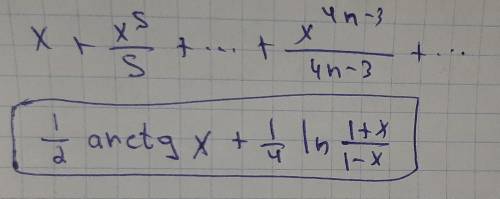 x + x^5/5 + ... + x^(4n-3)/(4n-3) + ...
1/2 arctg x + 1/4 ln (1+x)/(1-x)